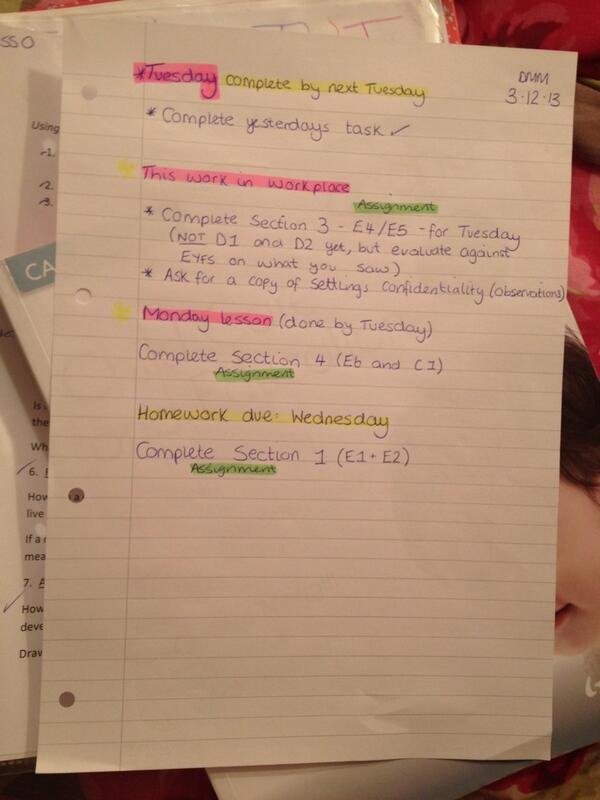 SSO
*Tuesday complete by next Tuesday
DMM
3.12.13
* Complete yesterdays task ✓
This work in workplace
Assignment
* Complete Section 3 - E4/E5 - for Tuesday
(NOT D1 and D2 yet, but evaluate against
EYFS on what you saw)
* Ask for a copy of settings confidentiality (observations)
Monday lesson (done by Tuesday)
Complete Section 4 (E6 and C1)
Assignment
Homework due: Wednesday
Complete Section 1 (E1+ E2)
Assignment
Using
1.
2.
3.
CA
Is
the
Wh
6.
How
live
If a
mea
7. A
How
deve
Draw